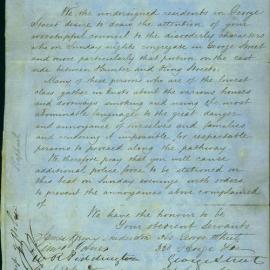 We the undersigned residents in George
Street desire to draw the attention of your
worshipful council to the disorderly characters
who on Sunday nights congregate in George Street
and more particularly that portion on the east
side between Hunter and King Streets.
Many of these persons who are of the lowest
class gather in knots about the various houses
and doorways smoking and using the most
abominable language to the great danger
and annoyance of ourselves and families
and rendering it impossible for respectable
persons to proceed along the pathway.
We therefore pray that you will cause
additional police force to be stationed on
this beat on Sunday evenings with orders
to prevent the annoyances above complained
of.
We have the honour to be
Your obedient Servants
George Street
George Street